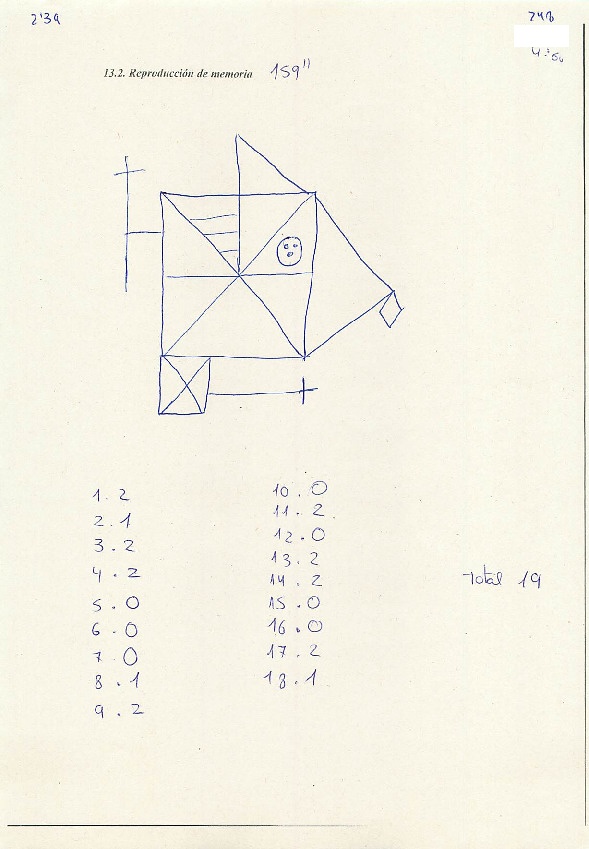 2'39
748
4:'50
13.2. Reproducción de memoria 159"
1. 2
2. 1
3. 2
4. 2
5. 0
6. 0
7. 0
8. 1
9. 2
10. 0
11. 2
12. 0
13. 2
14. 2
15. 0
16. 0
17. 2
18. 1
Total 19